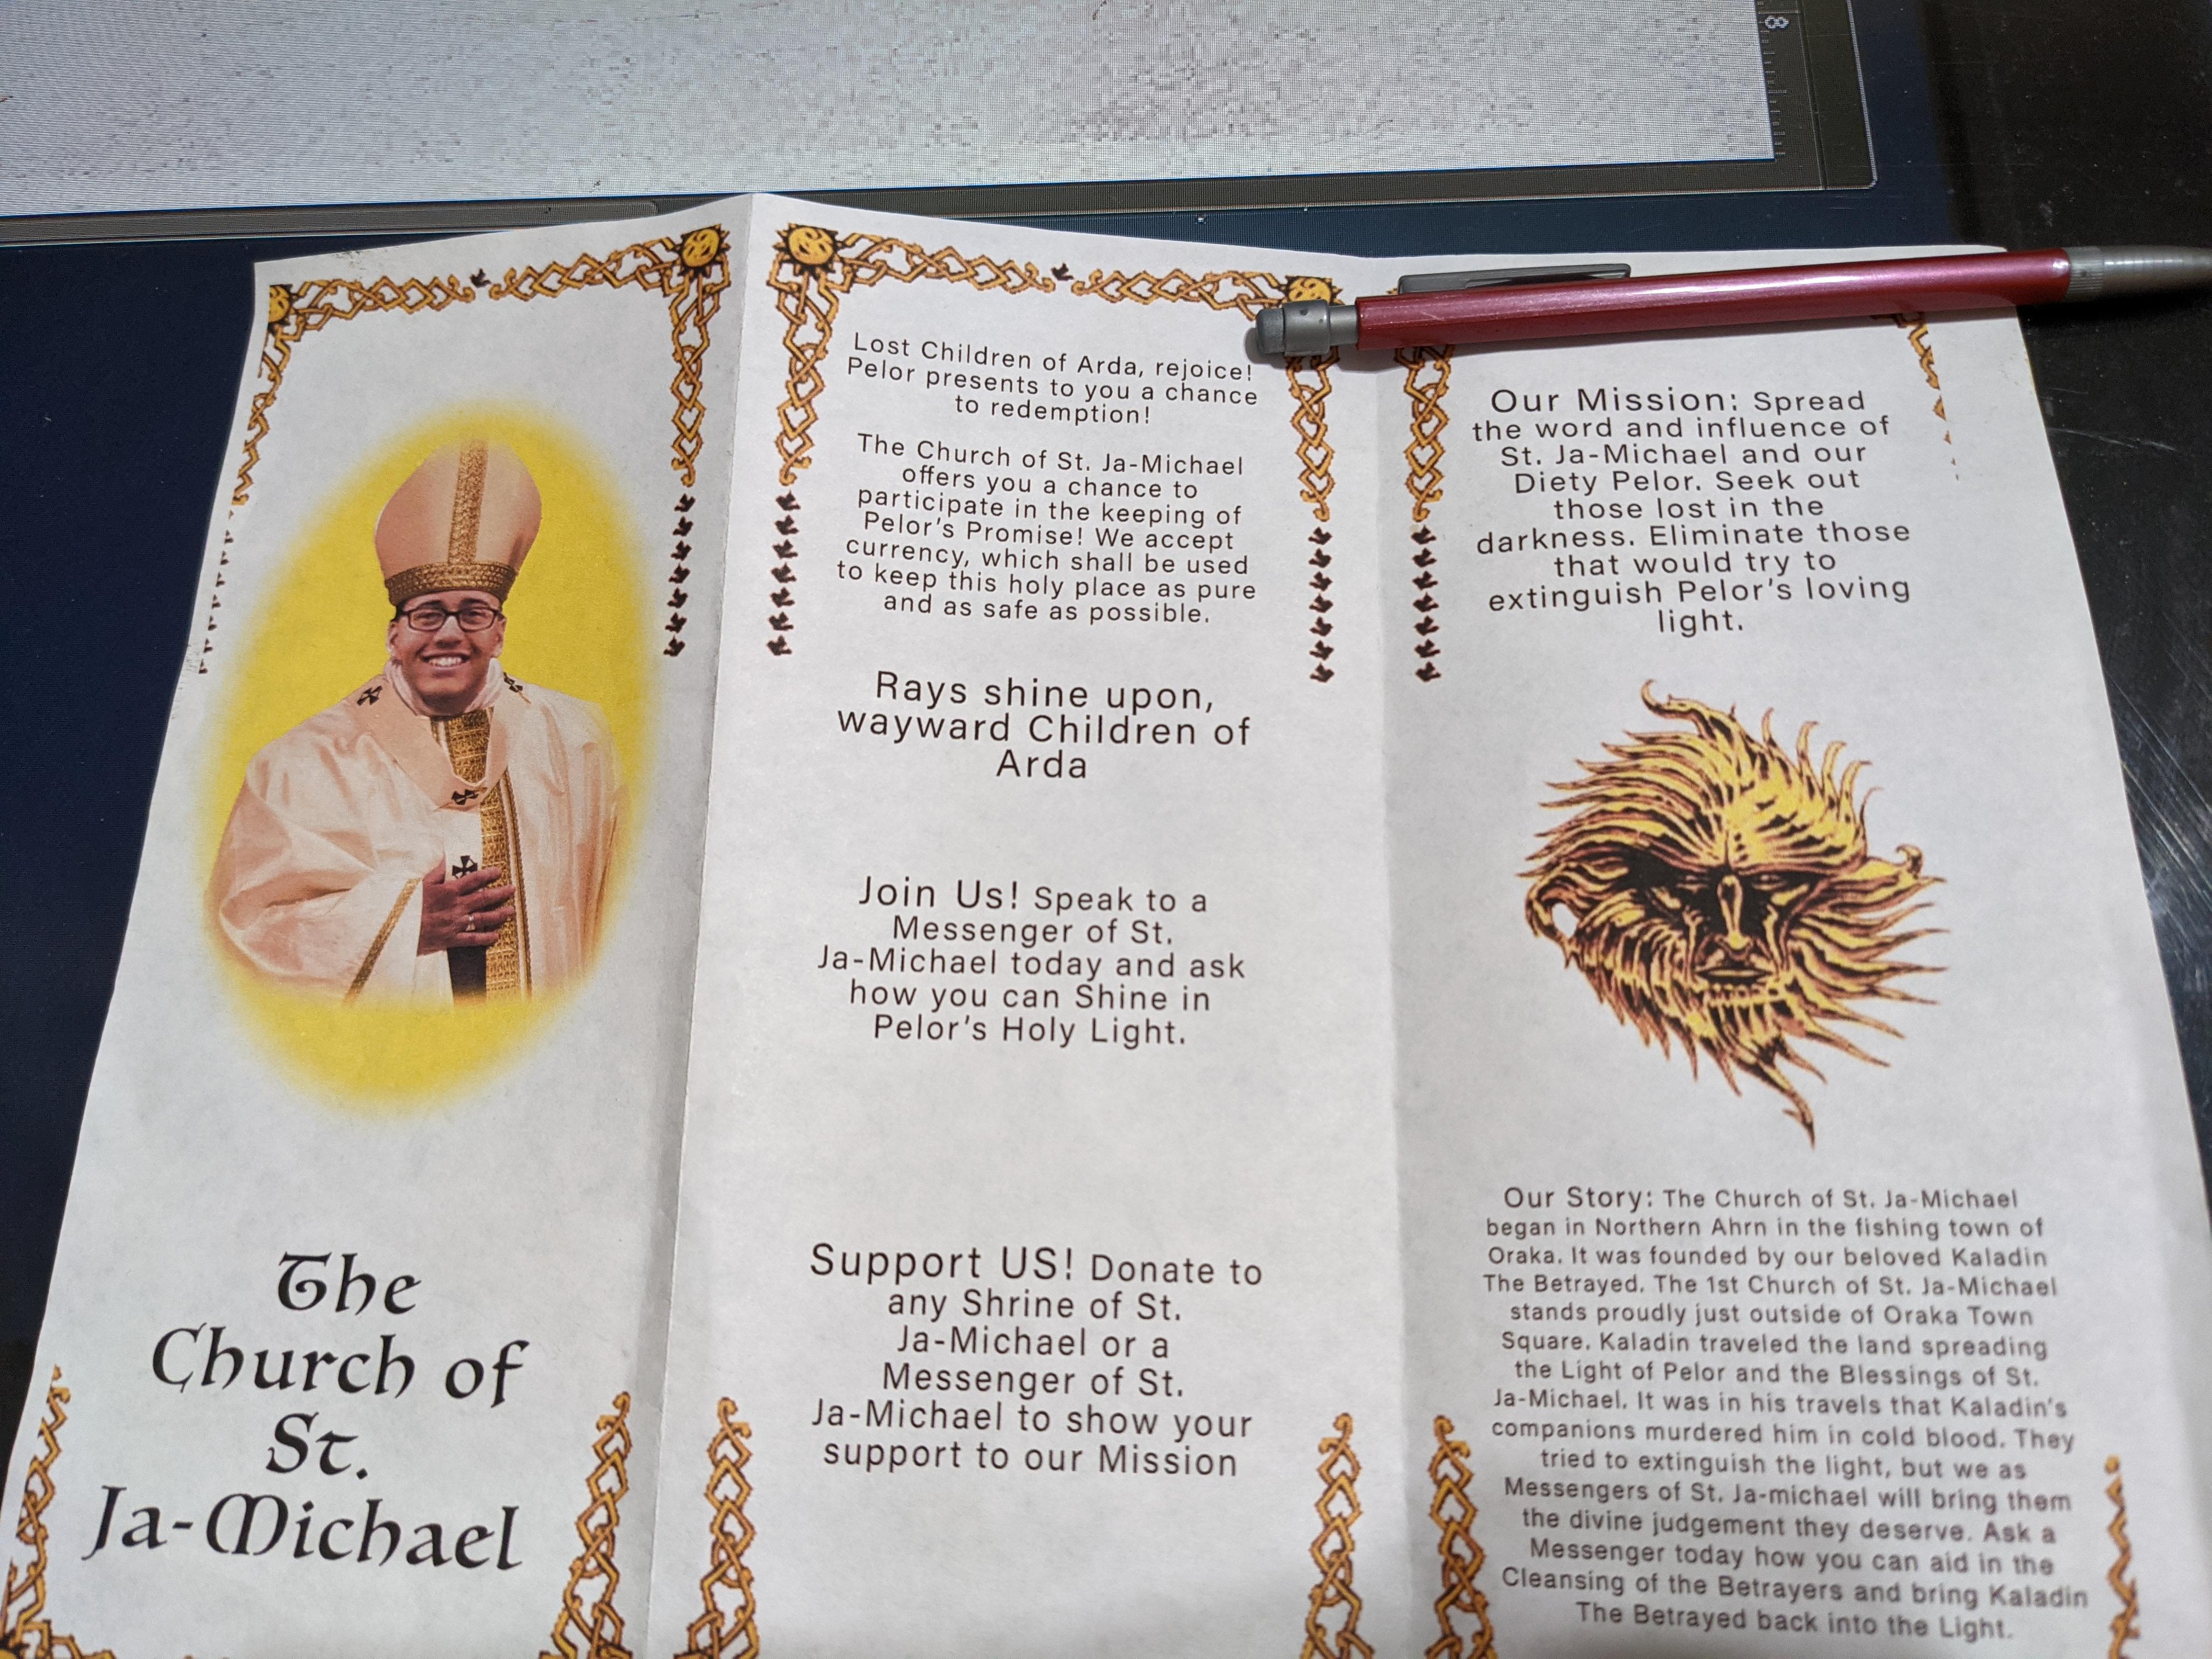 The
Church of
St.
Ja-Michael
Lost Children of Arda, rejoice!
Pelor presents to you a chance
to redemption!
The Church of St. Ja-Michael
offers you a chance to
participate in the keeping of
Pelor's Promise! We accept
currency, which shall be used
to keep this holy place as pure
and as safe as possible.
Rays shine upon,
wayward Children of
Arda
Join Us! Speak to a
Messenger of St.
Ja-Michael today and ask
how you can Shine in
Pelor's Holy Light.
Support US! Donate to
any Shrine of St.
Ja-Michael or a
Messenger of St.
Ja-Michael to show your
support to our Mission
Our Mission: Spread
the word and influence of
St. Ja-Michael and our
Diety Pelor. Seek out
those lost in the
darkness. Eliminate those
that would try to
extinguish Pelor's loving
light.
Our Story: The Church of St. Ja-Michael
began in Northern Ahrn in the fishing town of
Oraka. It was founded by our beloved Kaladin
The Betrayed. The 1st Church of St. Ja-Michael
stands proudly just outside of Oraka Town
Square. Kaladin traveled the land spreading
the Light of Pelor and the Blessings of St.
Ja-Michael. It was in his travels that Kaladin's
companions murdered him in cold blood. They
tried to extinguish the light, but we as
Messengers of St. Ja-michael will bring them
the divine judgement they deserve. Ask a
Messenger today how you can aid in the
Cleansing of the Betrayers and bring Kaladin
The Betrayed back into the Light.
8